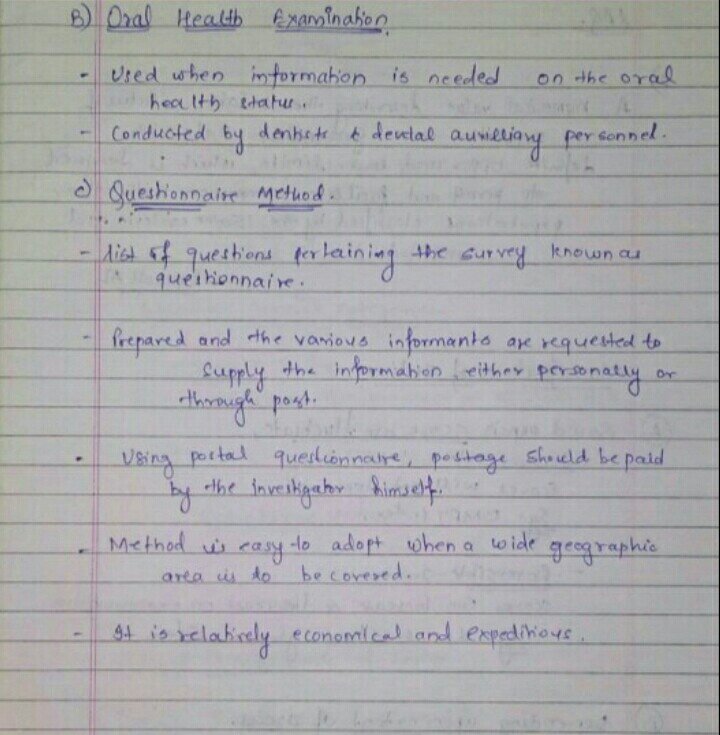 B) Oral Health Examination
- Used when information is needed on the oral
health status.
- Conducted by dentists & dental auxilliary personnel.
c) Questionnaire Method.
- List of questions pertaining the survey known as
questionnaire.
- Prepared and the various informants are requested to
supply the information, either personally or
through post.
• Using postal questionnaire, postage should be paid
by the investigator himself.
- Method is easy to adopt when a wide geographic
area is to be covered.
- It is relatively economical and expeditious.